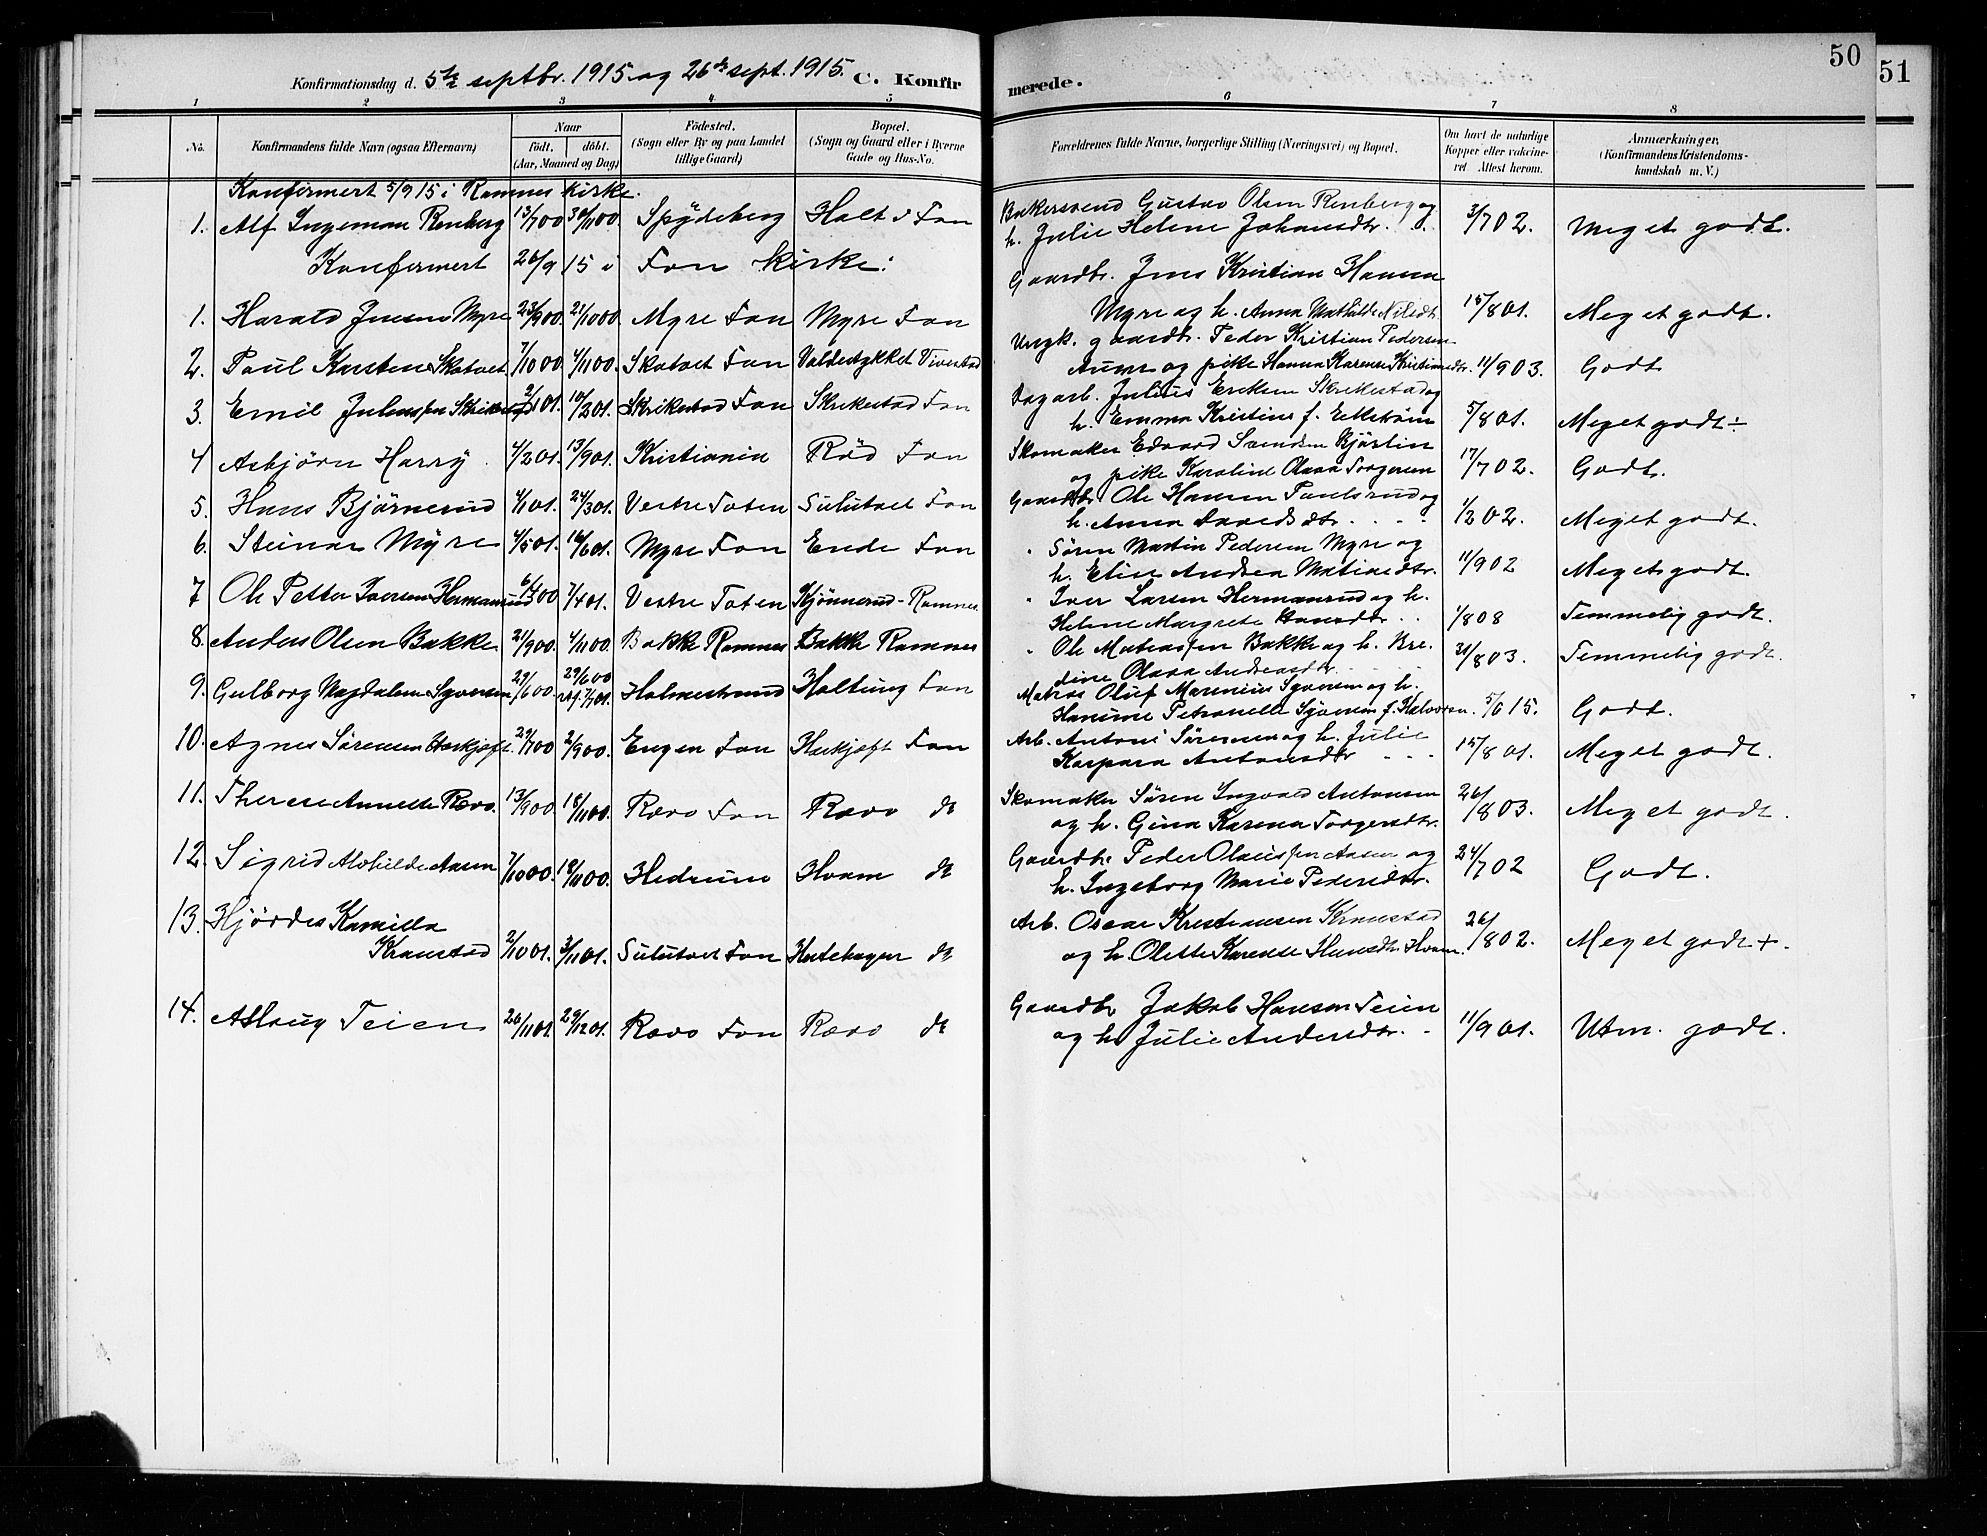 50
51
Konfirmationsdag d. 5te septbr. 1915 og 26de sept. 1915. C. Konfir
merede.
1 2 3 4 5
6 7 8
No. Konfirmandens fulde Navn (ogsaa Efternavn) Naar født, døbt. (Aar, Maaned og Dag) Fødested. (Sogn eller By og paa Landet tillige Gaard) Bopæl. (Sogn og Gaard eller i Byerne Gade og Hus-No.
Forældrenes fulde Navne, borgerlige Stilling (Næringsvei) og Bopæl. Om havt de naturlige Kopper eller vakcineret Attest herom. Anmærkninger. (Konfirmandens Kristendomskundskab m. V.)
Konfirmert 5/9 15 i Ramnes kirke.
1. Alf Ingeman Renberg 13/7 00 30/11 00. Spydeberg Holt i Fon
Bakersvend Gustav Olsen Renberg og
h. Julie Helene Johansdtr. 3/7 02. Meget godt.
Konfirmert 26/9 15 i Fon kirke:
Gaardbr. Jens Kristian Hansen
1. Harald Jensen Myre 23/9 00. 21/10 00. Myre Fon Myre Fon
Myre og h. Anna Mathilde Nilsdtr. 15/8 01. Meget godt.
Ungk. gaardbr. Peder Kristian Pedersen
2. Paul Karsten Skatvet 7/10 00 4/11 00. Skatvet Fon Valdestykket Vivestad
og pike Hanna Karense Kristiansdtr. 11/9 03. Godt
Dagarb. Julius Eriksen Skrikestad og
3. Emil Juliussen Skrikestad 2/1 01. 10/2 01. Skrikestad Fon Skrikestad Fon
h. Emma Kristine f. Eckstrøm 5/8 01. Meget godt ÷
Skomaker Edvard Svendsen Bjørlin
4 Asbjørn Harry. 4/2 01. 13/9 01. Kristiania Rød Fon
og pike Karoline Olava Torgersen 17/7 02. Godt.
Gaardbr. Ole Hansen Paulsrud og
5. Hans Bjørnerud 4/1 01. 24/3 01. Vestre Toten Sulutvet Fon
h. Anna Davidsdtr. 1/2 02. Meget godt.
" Søren Martin Pedersen Myre og
6. Steinar Myre 4/5 01. 16/6 01. Myre Fon Ende Fon
h. Elin Andrea Matiasdtr. 11/9 02 Meget godt.
" Iver Larsen Hermansrud og h.
7 Ole Petter Iversen Hermansrud 6/4 00 7/4 01. Vestre Toten Kjønnerud - Ramnes
Helene Margrete Hansdtr. 1/8 08 Temmelig godt.
8. Anders Olsen Bakke 21/9 00. 4/11 00. Bakke Ramnes Bakke Ramnes
" Ole Matiassen Bakke og h. Bre-
dine Olava Andreasdtr. 21/8 03. Temmelig godt.
9. Gulborg Magdalene Syversen 29/6 00. 29/6 00 Holmestrand Holtung Fon
Matros Oluf Marenius Syversen og h.
Hanine Petronelle Syversen f. Halvorsen. 5/6 15. Godt.
10. Agnes Sørensen Haskjoft. 29/7 00 2/9 00. Engen Fon Haskjoft Fon
Arb. Antoni Sørensen og h. Julie
Kaspara Antonsdtr 15/8 01. Meget godt.
11. Therese Annette Revo. 13/9 00. 18/11 00. Revo Fon Revo do
Skomaker Søren Ingvald Antonsen
og h. Gina Karena Torgersdtr. 26/8 03. Meget godt.
12. Sigrid Alvhilde Aasen 7/10 00. 18/11 00. Hedrum Hvam do
Gaardbr Peder Olaussen Aasen og
h. Ingeborg Marie Pedersdtr. 24/7 02 Godt.
13. Hjørdis Kamilla
Kranstad 2/10 01. 3/11 01. Sulutvet Fon Hatehagen do
Arb. Oscar Kristiansen Kranstad
og h. Olette Karense Hansdtr. Hvam. 26/8 02. Meget godt +.
14. Aslaug Teien 26/11 01. 29/12 01. Revo Fon Revo do
Gaardbr Jakob Hansen Teien
og h. Julie Andersdtr. 11/9 01. Utm. godt.